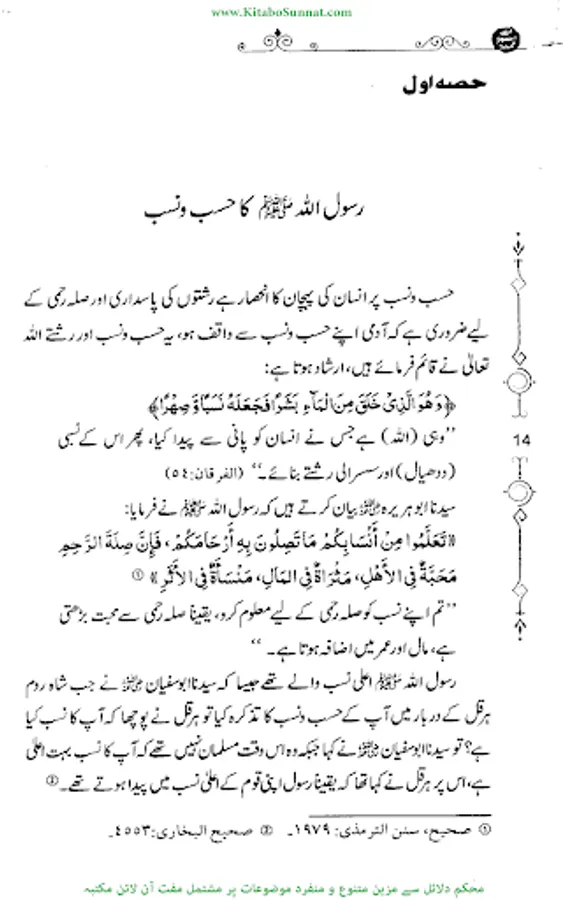 www.KitaboSunnat.com
حصہ اول
رسول اللہ ﷺ کا حسب ونسب
حسب ونسب پر انسان کی پہچان کا انحصار ہے رشتوں کی پاسداری اور صلہ رحمی کے
لیے ضروری ہے کہ آدمی اپنے حسب ونسب سے واقف ہو، یہ حسب ونسب اور رشتے اللہ
تعالیٰ نے قائم فرمائے ہیں، ارشاد ہوتا ہے:
﴿وَهُوَ الَّذِیْ خَلَقَ مِنَ الْمَآءِ بَشَرًا فَجَعَلَهٗ نَسَبًا وَّصِهْرًا﴾
14
’’وہی (اللہ) ہے جس نے انسان کو پانی سے پیدا کیا، پھر اس کے نسبی
(ددھیال) اور سسرالی رشتے بنائے۔‘‘ (الفرقان: ٥٤)
سیدنا ابو ہریرہ رضی اللہ عنہ بیان کرتے ہیں کہ رسول اللہ ﷺ نے فرمایا:
«تَعَلَّمُوا مِنْ أَنْسَابِكُمْ مَا تَصِلُونَ بِهِ أَرْحَامَكُمْ، فَإِنَّ صِلَةَ الرَّحِمِ
مَحَبَّةٌ فِي الْأَهْلِ، مَثْرَاةٌ فِي الْمَالِ، مَنْسَأَةٌ فِي الْأَثَرِ» ①
’’تم اپنے نسب کو صلہ رحمی کے لیے معلوم کرو، یقیناً صلہ رحمی سے محبت بڑھتی
ہے، مال اور عمر میں اضافہ ہوتا ہے۔‘‘
رسول اللہ ﷺ اعلیٰ نسب والے تھے جیسا کہ سیدنا ابوسفیان رضی اللہ عنہ نے جب شاہ روم
ہرقل کے دربار میں آپ کے حسب ونسب کا تذکرہ کیا تو ہرقل نے پوچھا کہ آپ کا نسب کیا
ہے؟ تو سیدنا ابوسفیان رضی اللہ عنہ نے کہا جبکہ وہ اس وقت مسلمان نہیں تھے کہ آپ کا نسب بہت اعلیٰ
ہے، اس پر ہرقل نے کہا تھا کہ یقیناً رسول اپنی قوم کے اعلیٰ نسب میں پیدا ہوتے تھے۔ ②
① صحیح، سنن الترمذی: ١٩٧٩۔ ② صحیح البخاری: ٤٥٥٣۔
محکم دلائل سے مزین متنوع و منفرد موضوعات پر مشتمل مفت آن لائن مکتبہ